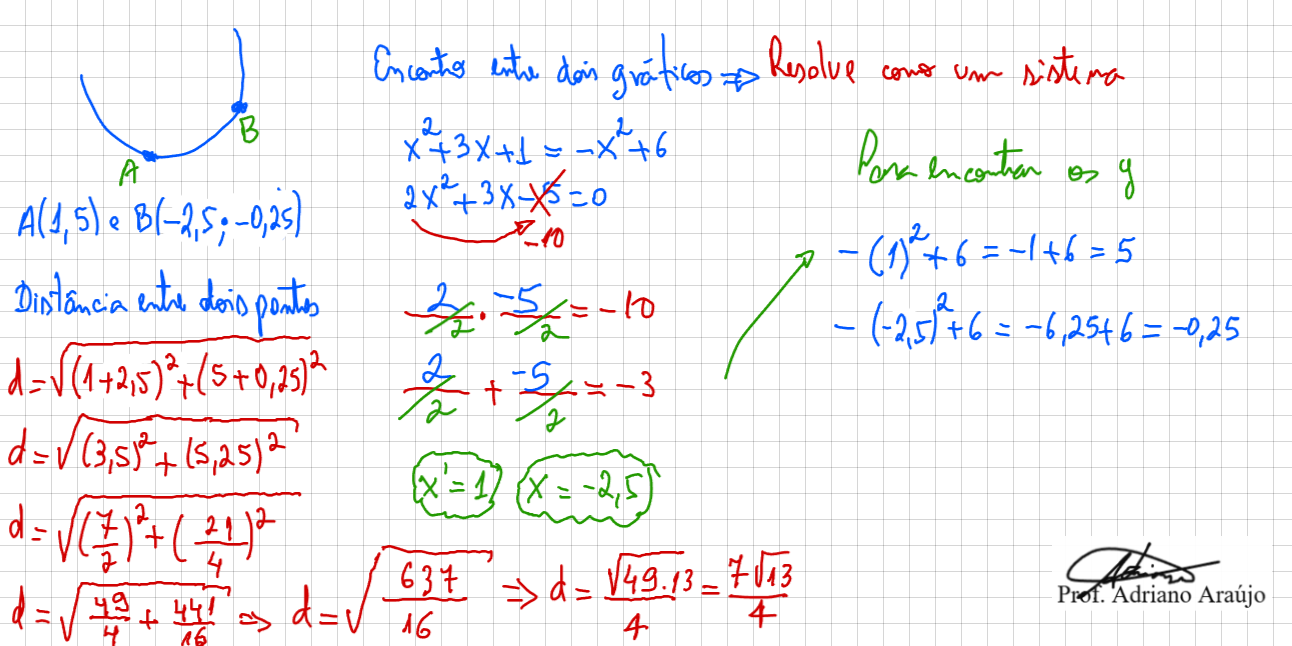 A
B
A(1,5) e B(-2,5; -0,25)
Distância entre dois pontos
d = √((1+2,5)² + (5+0,25)²)
d = √((3,5)² + (5,25)²)
d = √((7/2)² + (21/4)²)
d = √(49/4 + 441/16) ⇒ d = √(637/16) ⇒ d = √(49.13)/4 = 7√13/4
Encontro entre dois gráficos ⇒ Resolve como um sistema
x² + 3x + 1 = -x² + 6
2x² + 3x - 5 = 0
-10
2/2 · -5/2 = -10
2/2 + -5/2 = -3
x' = 1 x = -2,5
Para encontrar os y
-(1)² + 6 = -1 + 6 = 5
-(-2,5)² + 6 = -6,25 + 6 = -0,25
Prof. Adriano Araújo